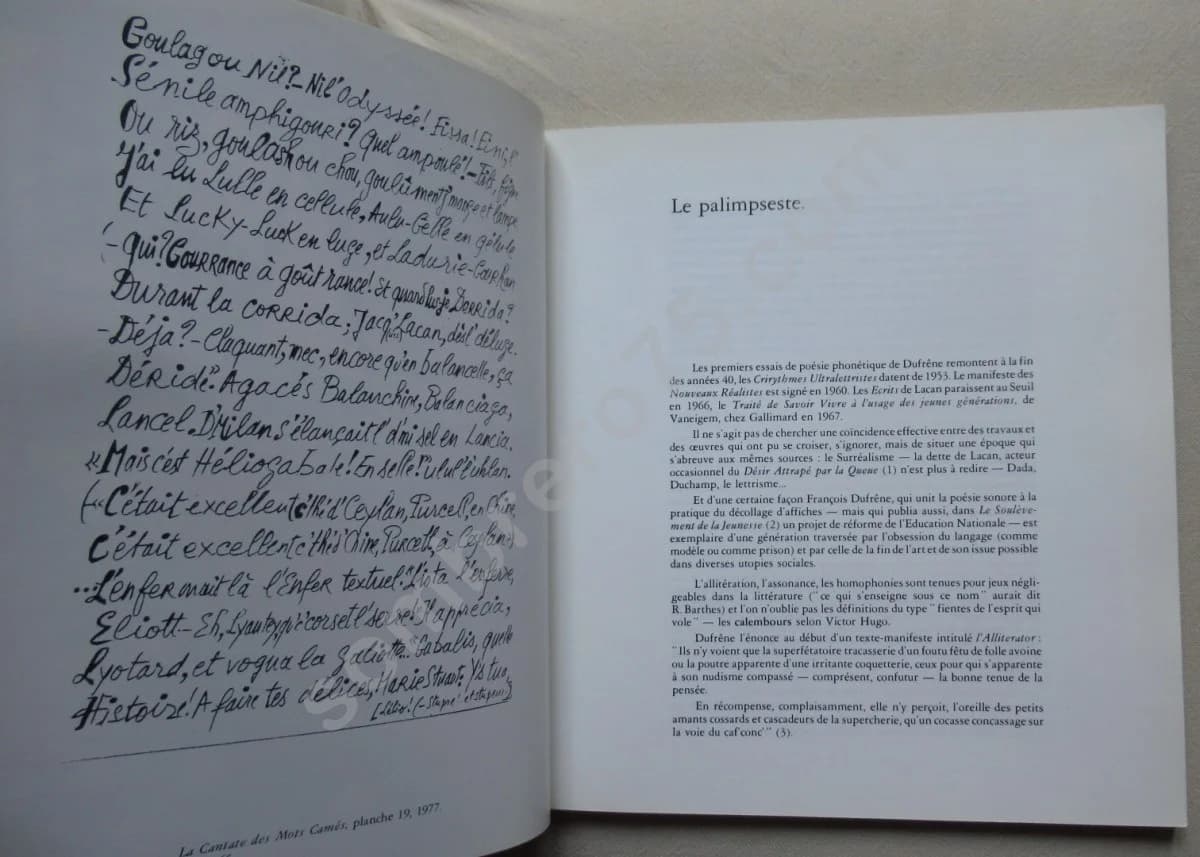 Goulag ou Nil? – Nil'Odyssée! Fissa! Fini,
Sénile amphigouri? Quel ampoulé! –
Ou riz, goulash ou chou, goulûment, mange et lampe
J'ai lu Lulle en cellule, Aulu-Gelle en gélule
Et Lucky-Luck en luge, et Ladurie-Gourhan
(– Qui? Gourrance à goût rance! Et quand lus-je Derrida?
Durant la corrida; Jacq' Lacan, dès l'déluge.
– Déjà? – Claquant, mec, encore qu'en balancelle, ça
Déride". Agacés Balanchine, Balenciaga,
Lancel. D'Milan s'élançait l' d'misel en Lancia.
«Mais c'est Héliogabale! En selle!" ulul' l'uhlan.
(«C'était excellent (c'thé d'Ceylan, Purcell, en Chine,
C'était excellent c'thé d'Chine, Purcell, à Ceylan–)
...L'enfermait là l'Enfer textuel." Lista l'enferre,
Eliott – Eh, Lyautey, qu'e corset l'serre! J'apprécia,
Lyotard, et vogua la Galiotte." Gabalis, quelle
Histoire! A faire tes délices, Marie Stuart: Y's tua,
La Cantate des Mots Camés, planche 19, 1977.
Le palimpseste.
Les premiers essais de poésie phonétique de Dufrêne remontent à la fin
des années 40, les Crirythmes Ultralettristes datent de 1953. Le manifeste des
Nouveaux Réalistes est signé en 1960. Les Ecrits de Lacan paraissent au Seuil
en 1966, le Traité de Savoir Vivre à l'usage des jeunes générations, de
Vaneigem, chez Gallimard en 1967.
Il ne s'agit pas de chercher une coïncidence effective entre des travaux et
des œuvres qui ont pu se croiser, s'ignorer, mais de situer une époque qui
s'abreuve aux mêmes sources : le Surréalisme — la dette de Lacan, acteur
occasionnel du Désir Attrapé par la Queue (1) n'est plus à redire — Dada,
Duchamp, le lettrisme...
Et d'une certaine façon François Dufrêne, qui unit la poésie sonore à la
pratique du décollage d'affiches — mais qui publia aussi, dans Le Soulève-
ment de la Jeunesse (2) un projet de réforme de l'Education Nationale — est
exemplaire d'une génération traversée par l'obsession du langage (comme
modèle ou comme prison) et par celle de la fin de l'art et de son issue possible
dans diverses utopies sociales.
L'allitération, l'assonance, les homophonies sont tenues pour jeux négli-
geables dans la littérature ("ce qui s'enseigne sous ce nom" aurait dit
R. Barthes) et l'on n'oublie pas les définitions du type "fientes de l'esprit qui
vole" — les calembours selon Victor Hugo.
Dufrêne l'énonce au début d'un texte-manifeste intitulé l'Alliterator :
"Ils n'y voient que la superfétatoire tracasserie d'un foutu fêtu de folle avoine
ou la poutre apparente d'une irritante coquetterie, ceux pour qui s'apparente
à son nudisme compassé — comprésent, confutur — la bonne tenue de la
pensée.
En récompense, complaisamment, elle n'y perçoit, l'oreille des petits
amants cossards et cascadeurs de la supercherie, qu'un cocasse concassage sur
la voie du caf'conc'" (3).